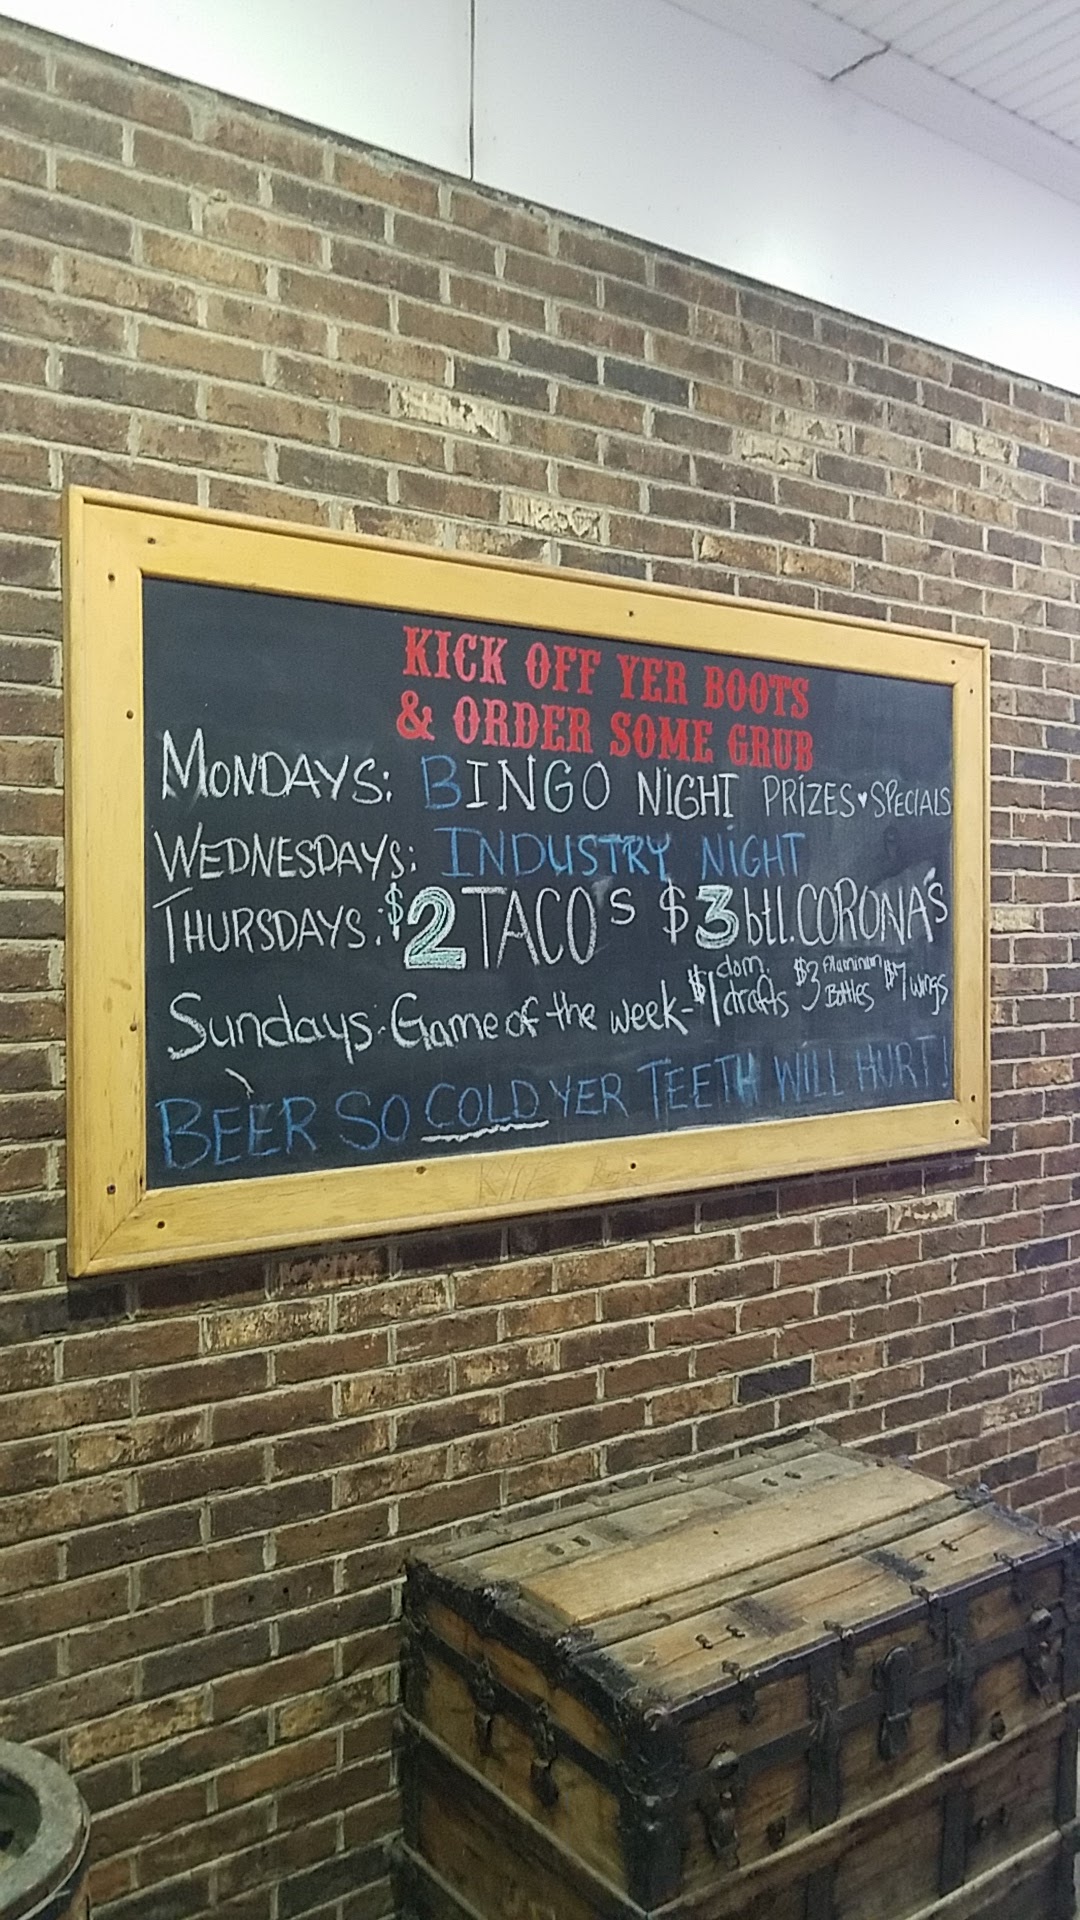 KICK OFF YER BOOTS
& ORDER SOME GRUB
MONDAYS: BINGO NIGHT PRIZES ♥ SPECIALS
WEDNESDAYS: INDUSTRY NIGHT
THURSDAYS: $2 TACO'S $3 btl. CORONA'S
Sundays: Game of the week - $1 dom. drafts $3 Aluminum Bottles $7 wings
BEER SO COLD YER TEETH WILL HURT!